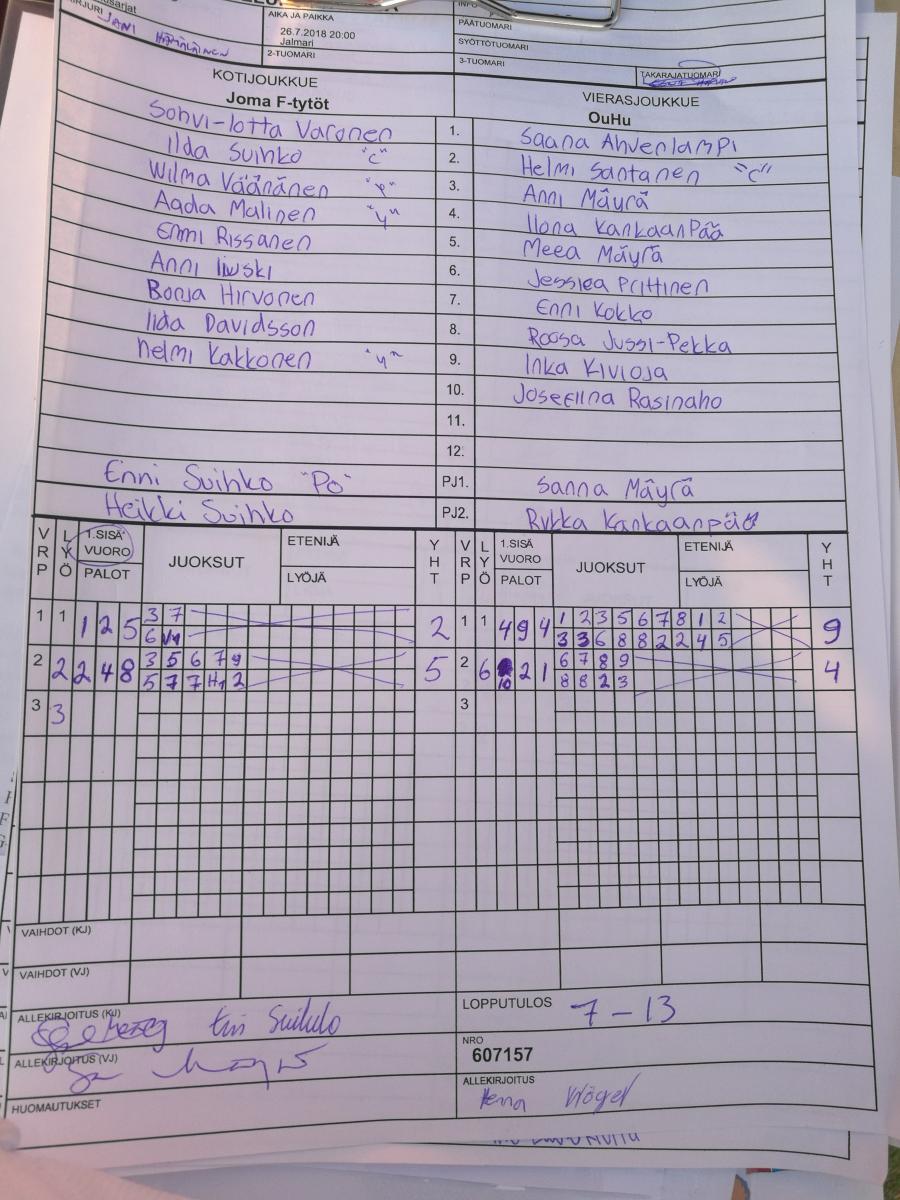 AIKA JA PAIKKA
PÄÄTUOMARI
26.7.2018 20:00
SYÖTTÖTUOMARI
JANI HÄMÄLÄINEN
Jalmari
2-TUOMARI
3-TUOMARI
TAKARAJATUOMARI
KOTIJOUKKUE
VIERASJOUKKUE
Joma F-tytöt
OuHu
Sohvi-lotta Varonen 1. Saana Ahvenlampi
Ilda Suihko "C" 2. Helmi Santanen "C"
Wilma Väänänen 3. Anni Mäyrä
Aada Malinen "y" 4. Ilona KankaanPää
Emmi Rissanen 5. Meea Mäyrä
Anni 6. Jessica Prittinen
Ronja Hirvonen 7. Enni Kokko
Iida Davidsson 8. Roosa Jussi-Pekka
Helmi Kakkonen "y" 9. Inka Kivioja
10. Josefiina Rasinaho
11.
12.
Enni Suihko "PO" PJ1. Sanna Mäyrä
Heikki Suihko PJ2. Rukka Kankaanpää
VRP LYÖ 1.SISÄVUORO PALOT JUOKSUT ETENIJÄ LYÖJÄ YHT VRP LYÖ 1.SISÄVUORO PALOT JUOKSUT ETENIJÄ LYÖJÄ YHT
1 1 1 2 5 3 7 2 1 1 4 9 4 1 2 3 5 6 7 8 1 2 9
6 3 3 6 8 8 2 2 4 5
2 2 2 4 8 3 5 6 7 9 5 2 6 10 2 1 6 7 8 9 4
5 7 7 2 8 8 2 3
3 3 3
VAIHDOT (KJ)
VAIHDOT (VJ)
ALLEKIRJOITUS (KJ)
LOPPUTULOS 7 - 13
ALLEKIRJOITUS (VJ)
NRO
607157
ALLEKIRJOITUS
HUOMAUTUKSET